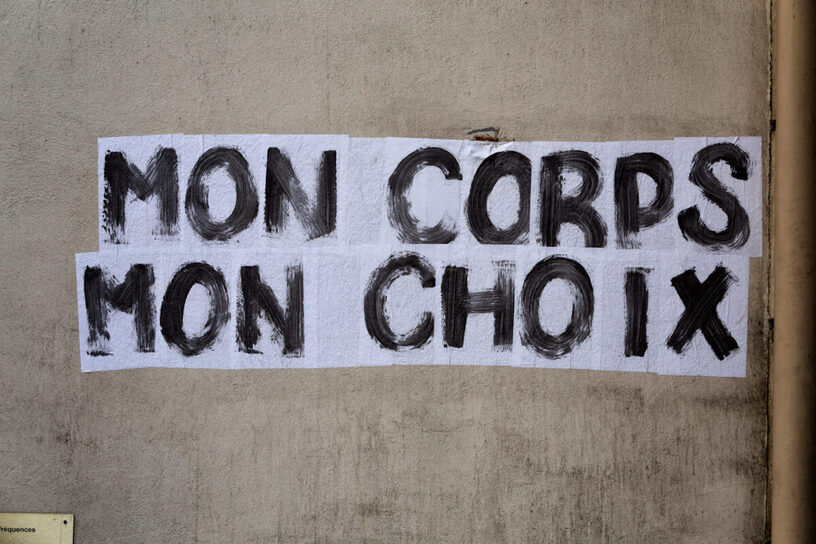 MON CORPS
MON CHOIX
fréquences